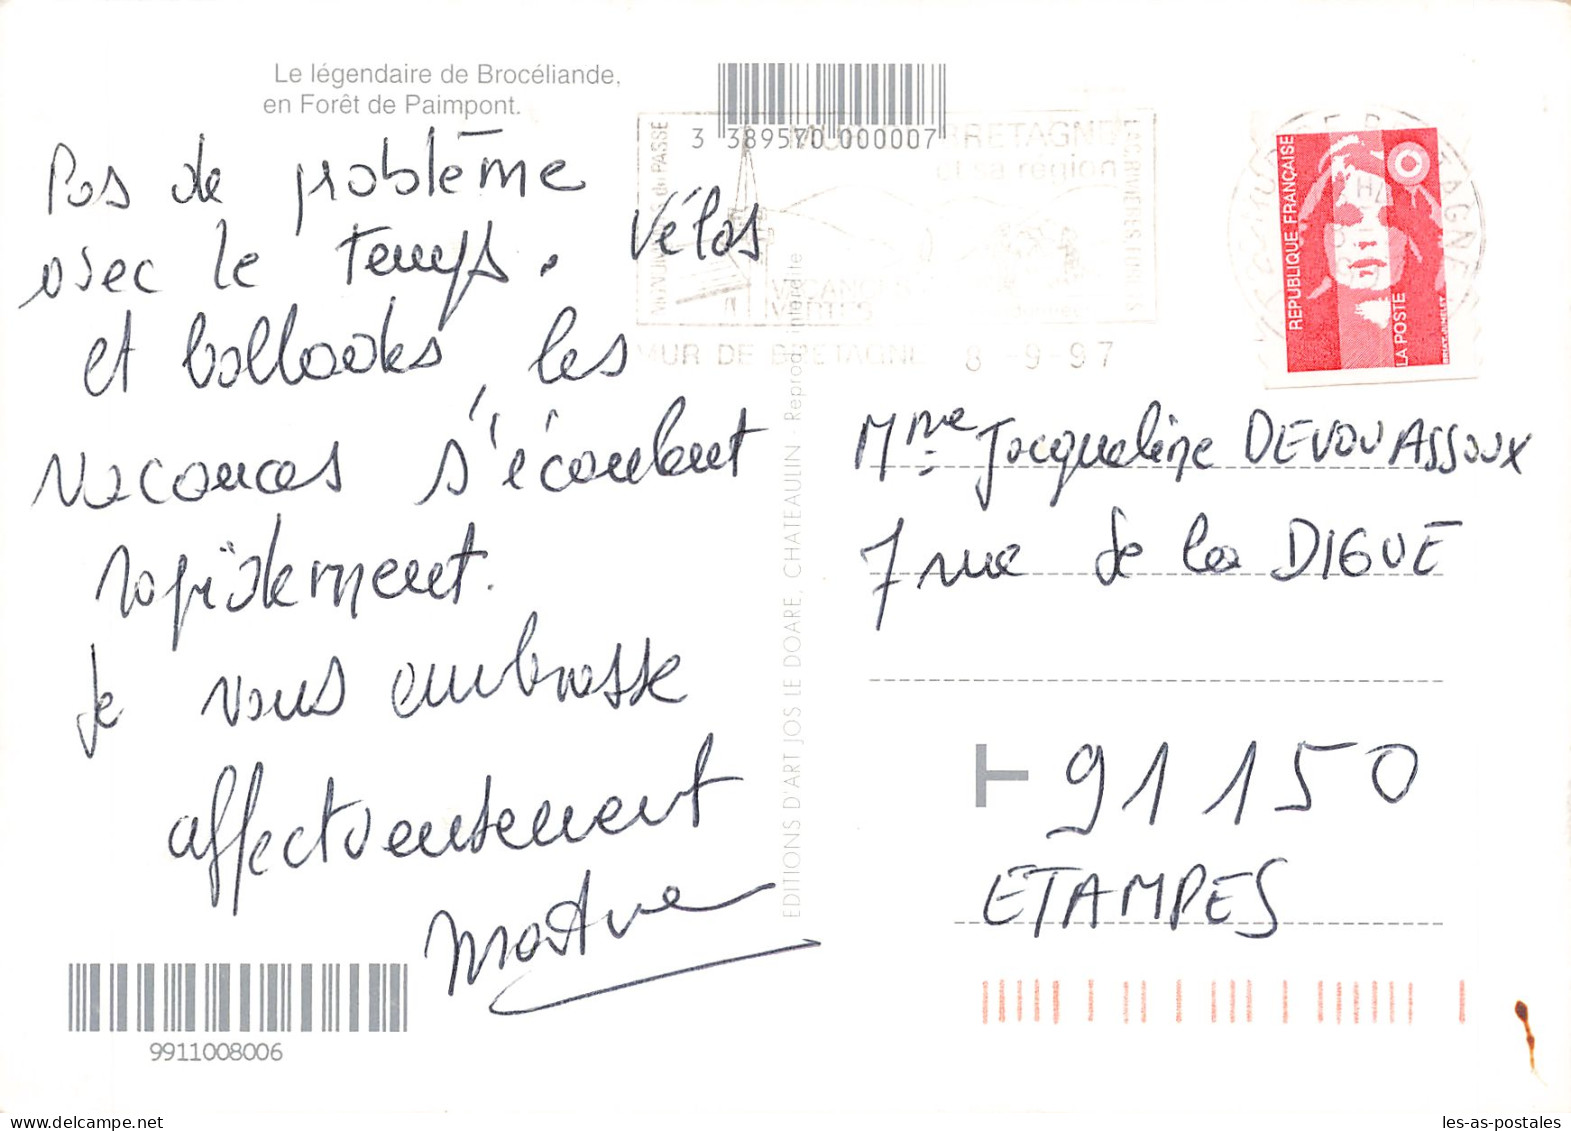 Le légendaire de Brocéliande,
en Forêt de Paimpont.
3 389570 000007
Pas de problème
avec le temps. Vélos
et ballades, les
vacances s'écoulent
rapidement.
Je vous embrasse
affectueusement
9911008006
EDITIONS D'ART JOS LE DOARE, CHATEAULIN - Reprod. interdite
BRETAGNE
et sa région
VACANCES
VERTES
MUR DE BRETAGNE 8-9-97
REPUBLIQUE FRANÇAISE
LA POSTE
Mme Jacqueline DEVOUASSOUX
7 rue de la DIGUE
T 91150
ETAMPES
les-as-postales